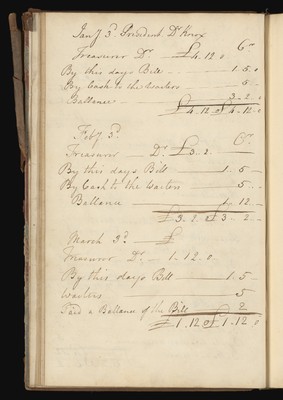 Jany 3d President Dr Knox
Treasurer Dr — £4.12.0 Cr
By this days Bill — 1.5.0
By Cash to the Waiters — 5.0
Ballance — 3.2.0
£4.12.0 £4.12.0
Feby 3d
Treasurer — Dr £3.2 — Cr
By this days Bill — 1.5 —
By Cash to the Waiters — 5 . .
Ballance — 1.12. —
£3.2.0 £3.2 —
March 3d — £
Treasurer Dr — 1.12.0
By this days Bill — 1.5 —
Waiters — 5
Paid a Ballance of the Bill 2
£1.12.0 £1.12.0